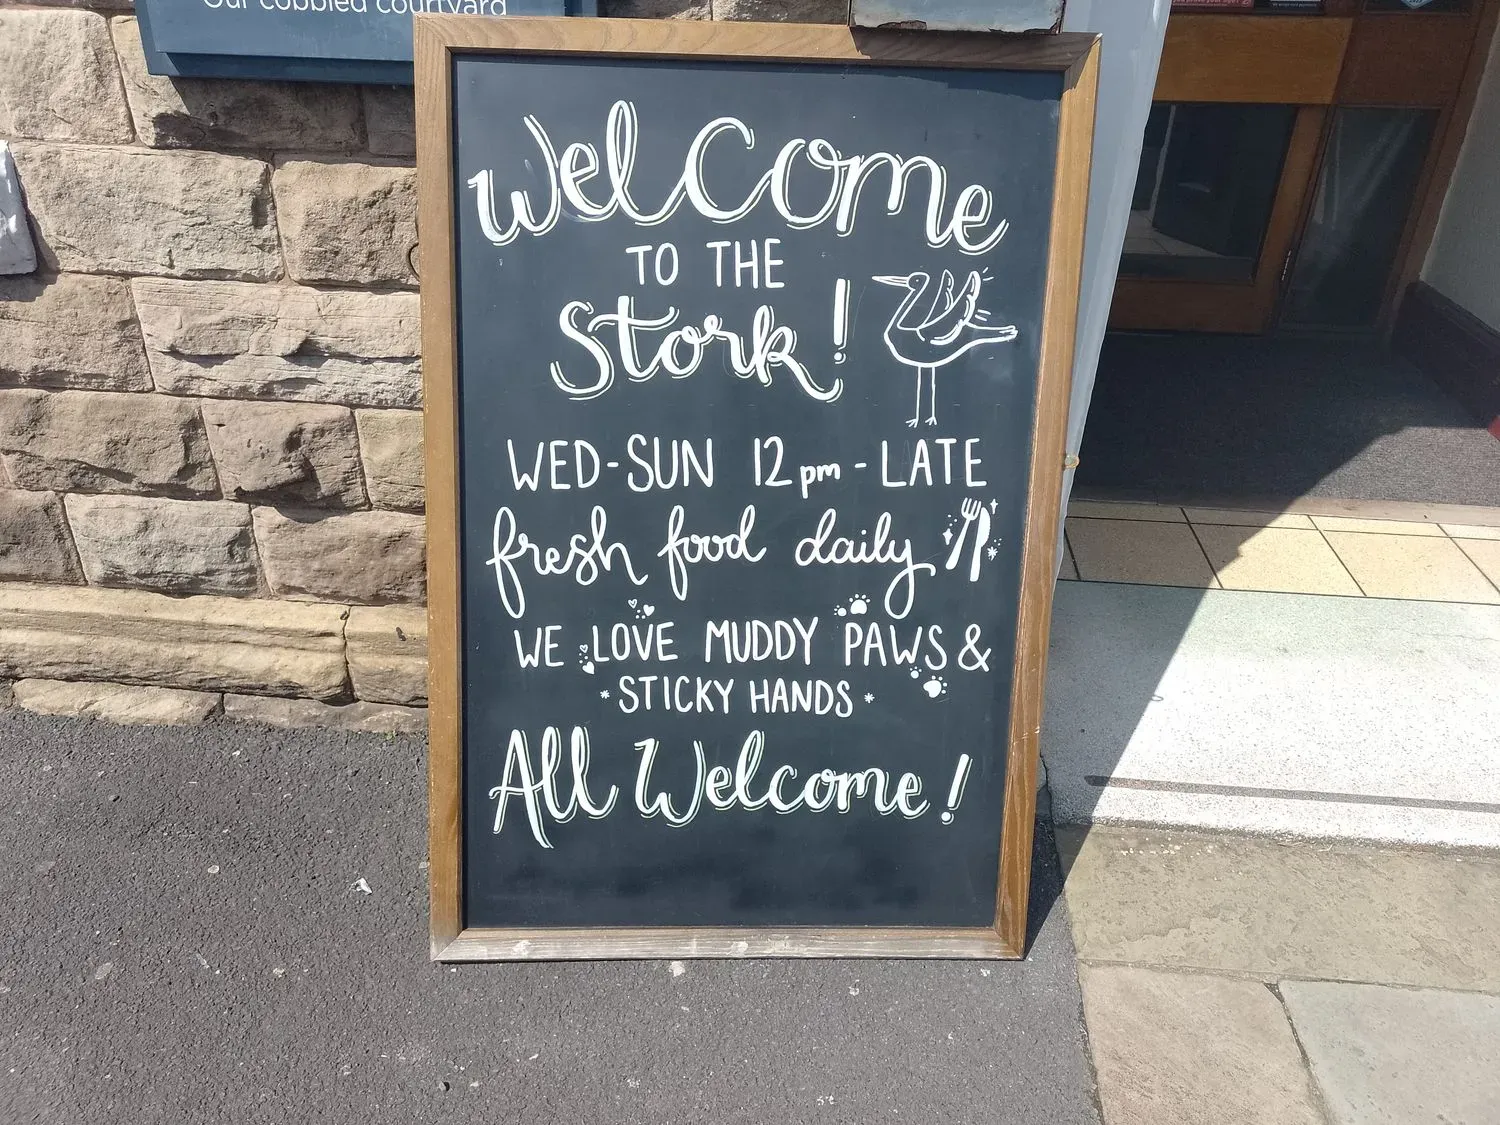 Our cobbled courtyard
Welcome
TO THE
Stork!
WED-SUN 12pm - LATE
fresh food daily
WE LOVE MUDDY PAWS &
STICKY HANDS
All Welcome!